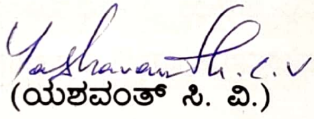 Yashavanth.c.v
(ಯಶವಂತ್ ಸಿ. ವಿ.)